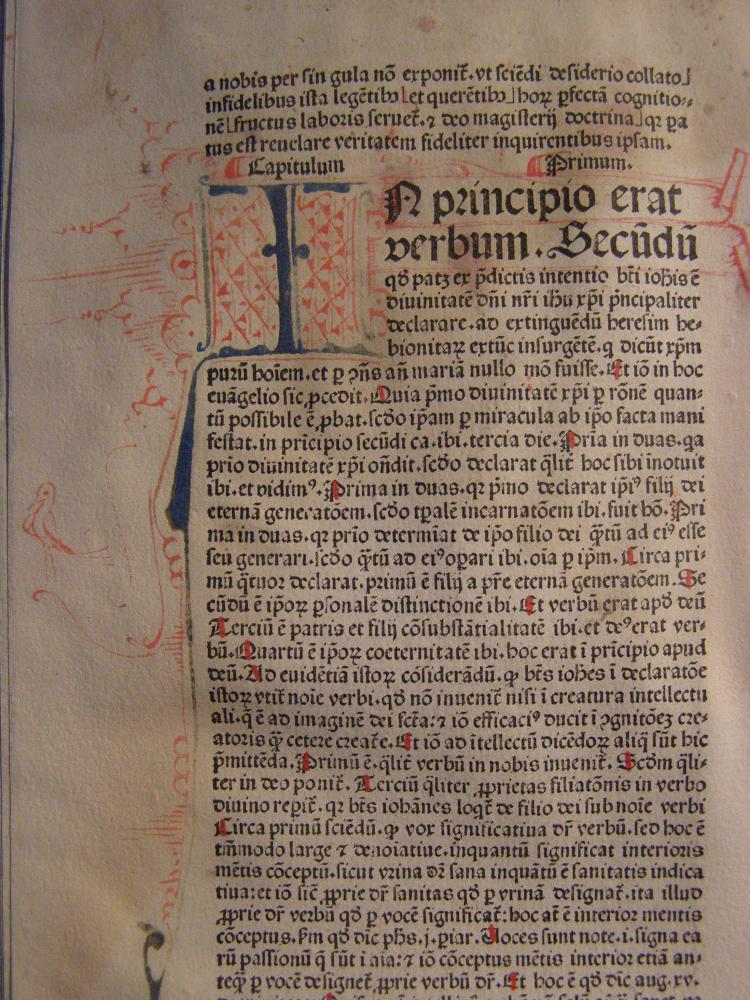 a nobis per sin gula nõ exponit᷑.vt sciẽdi desiderio collato⌋
infidelibus ista legẽtibꝫ ⌊et querẽtibꝫ⌋ hoꝝ pfectã cognitio-
nẽ ⌊fructus laboris seruet᷑.⁊ deo magisterij doctrina⌋ qꝛ pa
tus est reuelare veritatem fideliter inquirentibus ipsam.
Capitulum Primum.
IN principio erat
verbum. Secũdũ
qđ patꝫ ex p̃dictis intentio bt̃i ioh̃is ẽ
diuinitatẽ dñi nr̃i ih̃u xp̃i p̃ncipaliter
declarare.ad extinguẽdũ heresim he-
bionitaꝝ extũc insurgẽtẽ.q̃ dicũt xp̃m
purũ hoĩem.et ꝑ ꝯñs añ mariã nullo mõ fuisse.Et iõ in hoc
euãgelio sic ꝓcedit.Quia p̃mo diuinitatẽ xp̃i ꝑ rõnẽ quan-
tũ possibile ẽ ꝓbat.scđo ip̃am ꝑ miracula ab ip̃o facta mani
festat.in prĩcipio secũdi ca.ibi.tercia die.Pria in duas.qa
prio diuinitatẽ xp̃i oñdit.scđo declarat q̃lit᷑ hoc sibi ĩnotuit
ibi.et vidimꝰ.Prima in duas.qꝛ p̃mo declarat ip̃iꝰ filij dei
eternã generatõem.scđo tp̃alẽ incarnatõem ibi.fuit hõ.Pri
ma in duas.qꝛ prio determĩat de ip̃o filio dei q̃tũ ad eiꝰ esse
seu generari.scđo q̃tũ ad eiꝰ opari ibi.oĩa ꝑ ip̃m.Circa pri-
mũ q̃tuor declarat.primũ ẽ filij a p̃re eternã generatõem.Se
cũdũ ẽ ip̃oꝝ ꝑsonalẽ distinctionẽ ibi.Et verbũ erat apđ deũ
Terciũ ẽ patris et filij cõsubstãtialitatẽ ibi.et deꝰ erat ver-
bũ.Quartũ ẽ ip̃oꝝ coeternitatẽ ibi.hoc erat ĩ prĩcipio apud
deũ.Ad euidẽtiã istoꝝ cõsiderãdũ.ꝙ bt̃s ioh̃es ĩ declaratõe
istoꝝ vtit᷑ noĩe verbi.qđ nõ inuenit᷑ nisi ĩ creatura intellectu
ali.q̃ ẽ ad imaginẽ dei sct̃a:⁊ iõ efficaciꝰ ducit ĩ ꝯgnitõeꝫ cre-
atoris q̃ꝫ cetere create᷑.Et iõ ad ĩtellectũ dicẽdoꝝ aliq̃ sũt hic
p̃mittẽda.Primũ ẽ.q̃lit᷑ verbũ in nobis inuenit᷑.Scđm q̃li-
ter in deo ponit᷑.Terciũ q̃liter ꝓprietas filiatõnis in verbo
diuino reꝑit᷑.qꝛ bt̃s iohãnes loqt᷑ de filio dei sub noĩe verbi
Circa primũ sciẽdũ.ꝙ vox significatiua dr̃ verbũ.sed hoc ẽ
tm̃modo large ⁊ denoĩatiue.inquantũ significat interioris
mẽtis cõceptũ.sicut vrina dr̃ sana inquãtũ ẽ sanitatis indica
tiua:et iõ sic᷑ ꝓprie dr̃ sanitas qđ ꝑ vrinã designat᷑.ita illud
ꝓprie dr̃ verbũ qđ ꝑ vocẽ significat᷑:hoc at̃ ẽ interior mentis
cõceptus.ẜm qđ dic̃ ph̃s.j.ꝑiar.Voces sunt note.i.signa ea
rũ passionũ q̃ sũt ĩ aĩa:⁊ iõ cõceptus mẽtis interior etiã an-
teq̃ꝫ ꝑ vocẽ designet᷑ ꝓprie verbũ dr̃.Et hoc ẽ qđ dic̃ aug.xv.